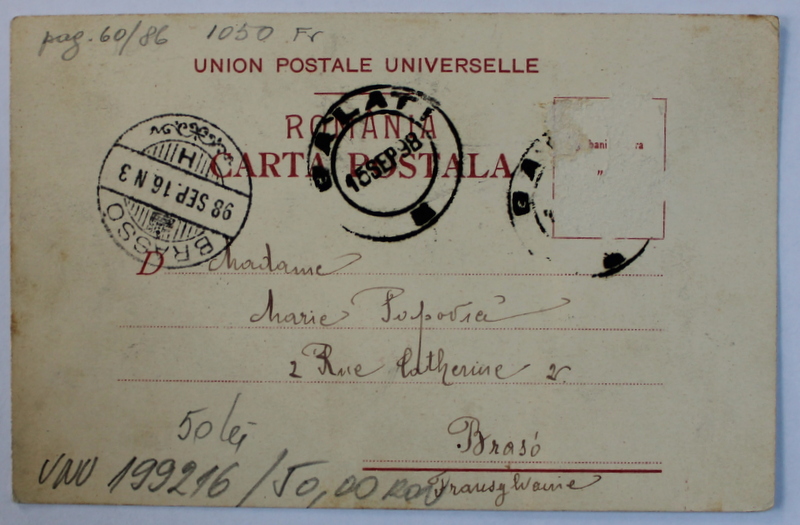 pag. 60/86 1050 Fr
UNION POSTALE UNIVERSELLE
ROMANIA
CARTA POSTALA
GALATI
15 SEP. 98
BRASSÓ
98 SEP. 16 N 3
H
bani
"
D Madame
Marie Popovici
2 Rue Catherine 2.
Brasó
Transylvanie
50 lei
VNU 199216 / 50,00 RON